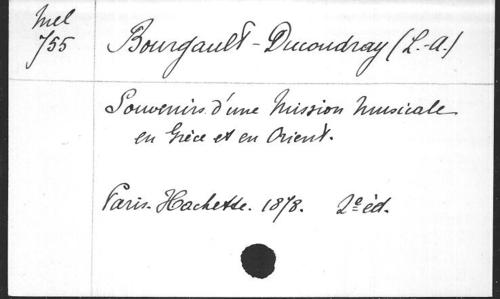 Mel
755
Bourgault-Ducoudray (L.-A.)
Souvenirs d'une Mission Musicale
en Grèce et en Orient.
Paris. Hachette. 1878. 2e éd.